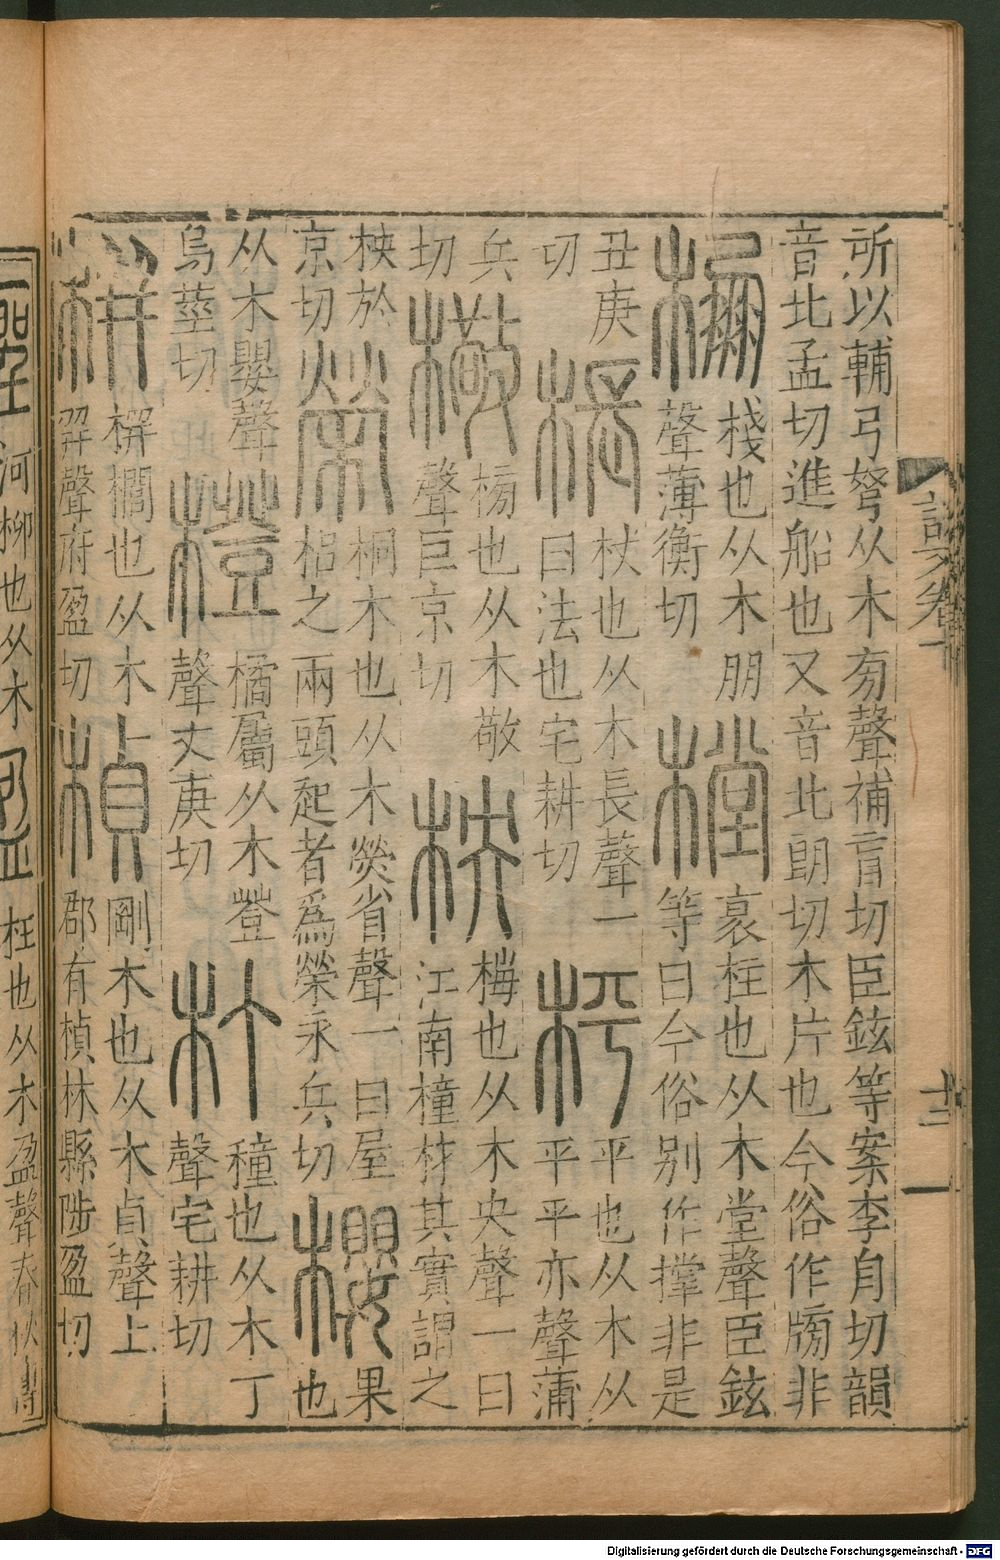 所以輔弓弩从木㫄聲補盲切臣鉉等案李舟切韻
音北孟切進船也又音北朗切木片也今俗作牓非
棚棧也从木朋聲薄衡切樘衺柱也从木堂聲臣鉉
等曰今俗別作撑非是
丑庚切棖杖也从木長聲一曰法也宅耕切枰平也从木从
平平亦聲蒲
兵切橄榜也从木敬聲巨京切柍梅也从木央聲一曰
江南橦材其實謂之
柍於京切榮桐木也从木熒省聲一曰屋梠之兩頭起者爲榮永兵切櫻果
也
从木嬰聲烏莖切橙橘屬从木登聲丈庚切朾橦也从木丁
聲宅耕切
栟栟櫚也从木幷聲府盈切楨剛木也从木貞聲上
郡有楨林縣陟盈切
說文卷十
十二
河柳也从木聖
桯也从木盈聲春秋傳
Digitalisierung gefördert durch die Deutsche Forschungsgemeinschaft - DFG